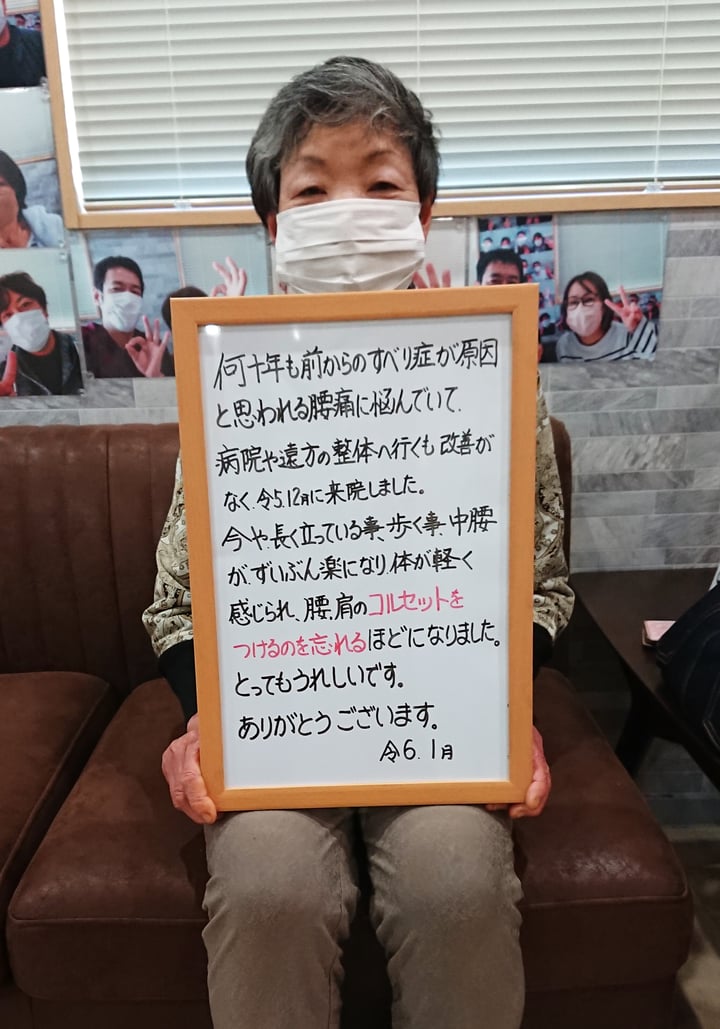 何十年も前からのすべり症が原因
と思われる腰痛に悩んでいて、
病院や遠方の整体へ行くも改善が
なく、令5.12月に来院しました。
今や、長く立っている事、歩く事、中腰
が、ずいぶん楽になり、体が軽く
感じられ、腰、肩のコルセットを
つけるのを忘れるほどになりました。
とってもうれしいです。
ありがとうございます。
令6.1月